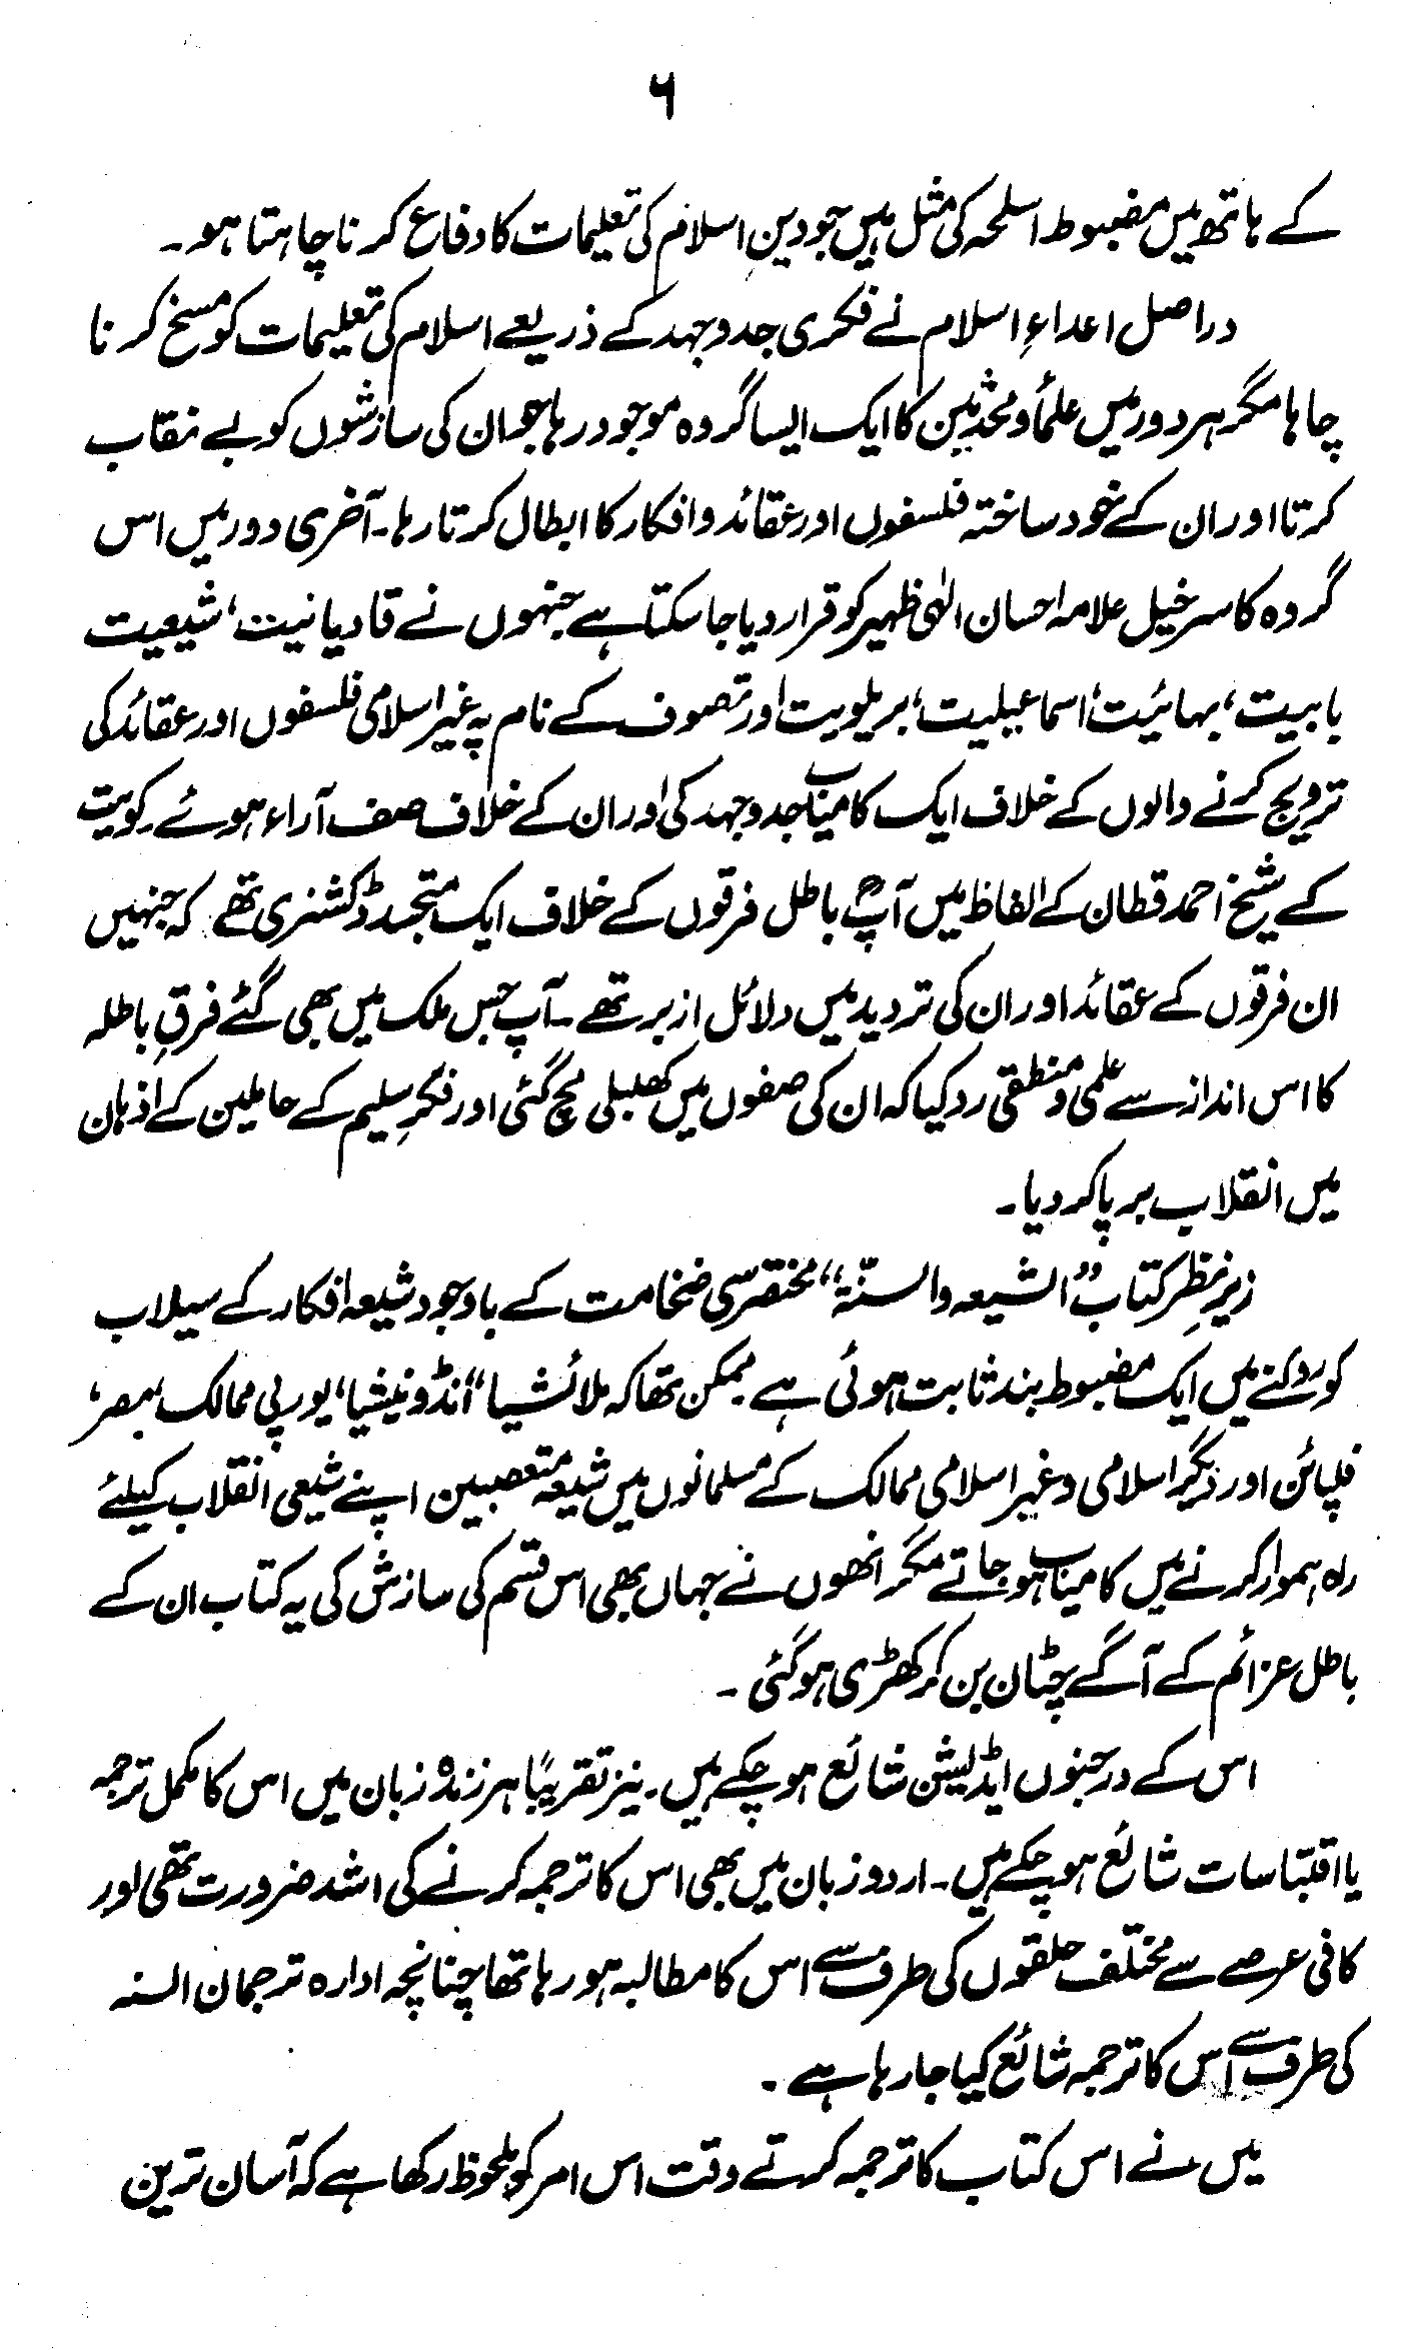 ۶
کے ہاتھ میں مضبوط اسلحہ کی مثل ہیں جو دینِ اسلام کی تعلیمات کا دفاع کرنا چاہتا ہو۔
دراصل اعداءِ اسلام نے فکری جدوجہد کے ذریعے اسلام کی تعلیمات کو مسخ کرنا
چاہا مگر ہر دور میں علمأ و محدّثین کا ایک ایسا گروہ موجود رہا جو ان کی سازشوں کو بے نقاب
کرتا اور ان کے خود ساختہ فلسفوں اور عقائد و افکار کا ابطال کرتا رہا۔ آخری دور میں اس
گروہ کا سرخیل علامہ احسان الٰہی ظہیر کو قرار دیا جا سکتا ہے جنہوں نے قادیانیت، شیعیت
بابیت، بہائیت، اسماعیلیت، بریلویت اور تصوف کے نام پہ غیر اسلامی فلسفوں اور عقائد کی
ترویج کرنے والوں کے خلاف ایک کامیاب جدوجہد کی اور ان کے خلاف صف آراء ہوئے۔ کویت
کے شیخ احمد قطان کے الفاظ میں آپؒ باطل فرقوں کے خلاف ایک متجسد ڈکشنری تھے کہ جنہیں
ان فرقوں کے عقائد اور ان کی تردید میں دلائل ازبر تھے۔ آپ جس ملک میں بھی گئے فرقِ باطلہ
کا اس انداز سے علمی و منطقی رد کیا کہ ان کی صفوں میں کھلبلی مچ گئی اور فکرِ سلیم کے حاملین کے اذہان
میں انقلاب برپا کر دیا۔
زیرِ نظر کتاب ”الشیعہ والسنّۃ“ مختصر سی ضخامت کے باوجود شیعہ افکار کے سیلاب
کو روکنے میں ایک مضبوط بند ثابت ہوئی ہے ممکن تھا کہ ملائشیا، انڈونیشیا، یورپی ممالک، مصر،
فلپائن اور دیگر اسلامی و غیر اسلامی ممالک کے مسلمانوں میں شیعہ متعصبین اپنے شیعی انقلاب کیلئے
راہ ہموار کرنے میں کامیاب ہو جاتے مگر انھوں نے جہاں بھی اس قسم کی سازش کی یہ کتاب ان کے
باطل عزائم کے آگے چٹان بن کر کھڑی ہو گئی۔
اس کے درجنوں ایڈیشن شائع ہو چکے ہیں۔ نیز تقریباً ہر زندہ زبان میں اس کا مکمل ترجمہ
یا اقتباسات شائع ہو چکے ہیں۔ اردو زبان میں بھی اس کا ترجمہ کرنے کی اشد ضرورت تھی اور
کافی عرصے سے مختلف حلقوں کی طرف سے اس کا مطالبہ ہو رہا تھا چنانچہ ادارہ ترجمان السنہ
کی طرف سے اس کا ترجمہ شائع کیا جا رہا ہے۔
میں نے اس کتاب کا ترجمہ کرتے وقت اس امر کو ملحوظ رکھا ہے کہ آسان ترین